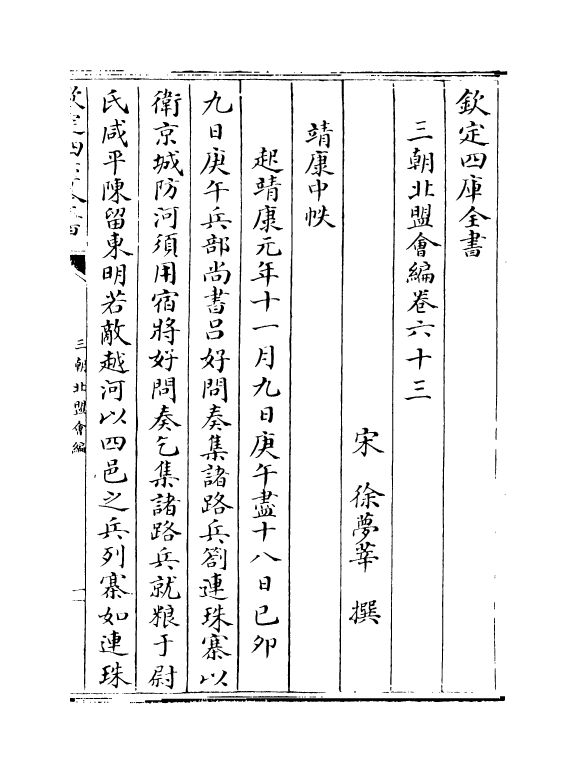 欽定四庫全書
三朝北盟會編卷六十三
宋 徐夢莘 撰
靖康中帙
起靖康元年十一月九日庚午盡十八日己卯
九日庚午兵部尚書呂好問奏集諸路兵劄連珠寨以
衛京城防河須用宿將好問奏乞集諸路兵就粮于尉
氏咸平陳留東明若敵越河以四邑之兵列寨如連珠
三朝北盟會編
一